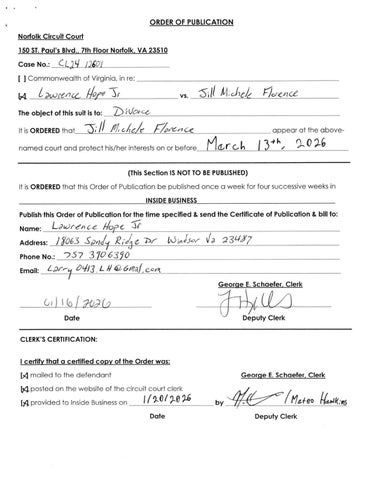 ORDER OF PUBLICATION
Norfolk Circuit Court
150 ST. Paul's Blvd., 7th Floor Norfolk, VA 23510
Case No.: CL24 12601
[ ] Commonwealth of Virginia, in re:
[x] Lawrence Hope Jr vs. Jill Michele Florence
The object of this suit is to: Divorce
It is ORDERED that Jill Michele Florence appear at the above-
named court and protect his/her interests on or before March 13th, 2026
(This Section IS NOT TO BE PUBLISHED)
It is ORDERED that this Order of Publication be published once a week for four successive weeks in
INSIDE BUSINESS
Publish this Order of Publication for the time specified & send the Certificate of Publication & bill to:
Name: Lawrence Hope Jr
Address: 18063 Sandy Ridge Dr Windsor Va 23487
Phone No.: 757 3906390
Email: Larry0413.LH@Gmail.com
George E. Schaefer, Clerk
01/16/2026
Date Deputy Clerk
CLERK'S CERTIFICATION:
I certify that a certified copy of the Order was:
[x] mailed to the defendant George E. Schaefer, Clerk
[x] posted on the website of the circuit court clerk
[x] provided to Inside Business on 1/20/2026 by / Mateo Hawkins
Date Deputy Clerk